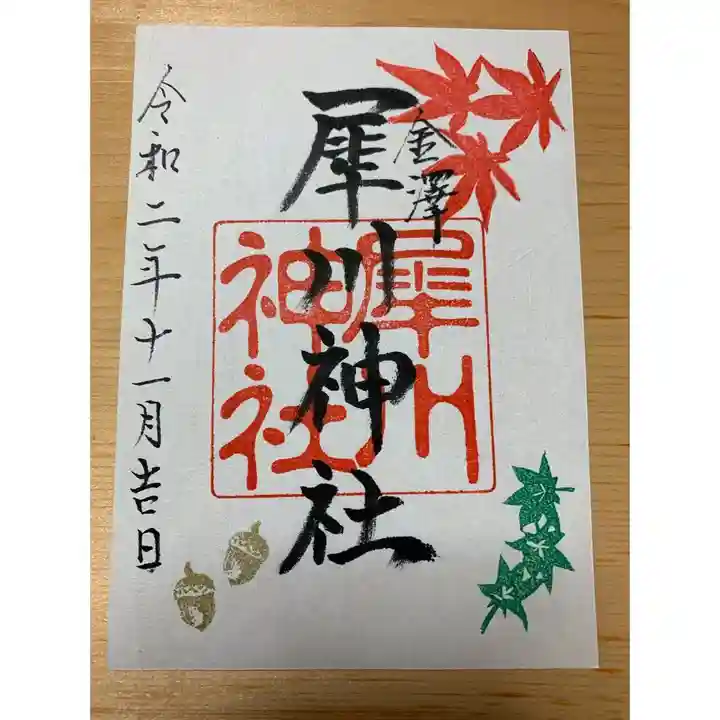 金澤
犀川神社
犀川
神社
令和二年十一月吉日